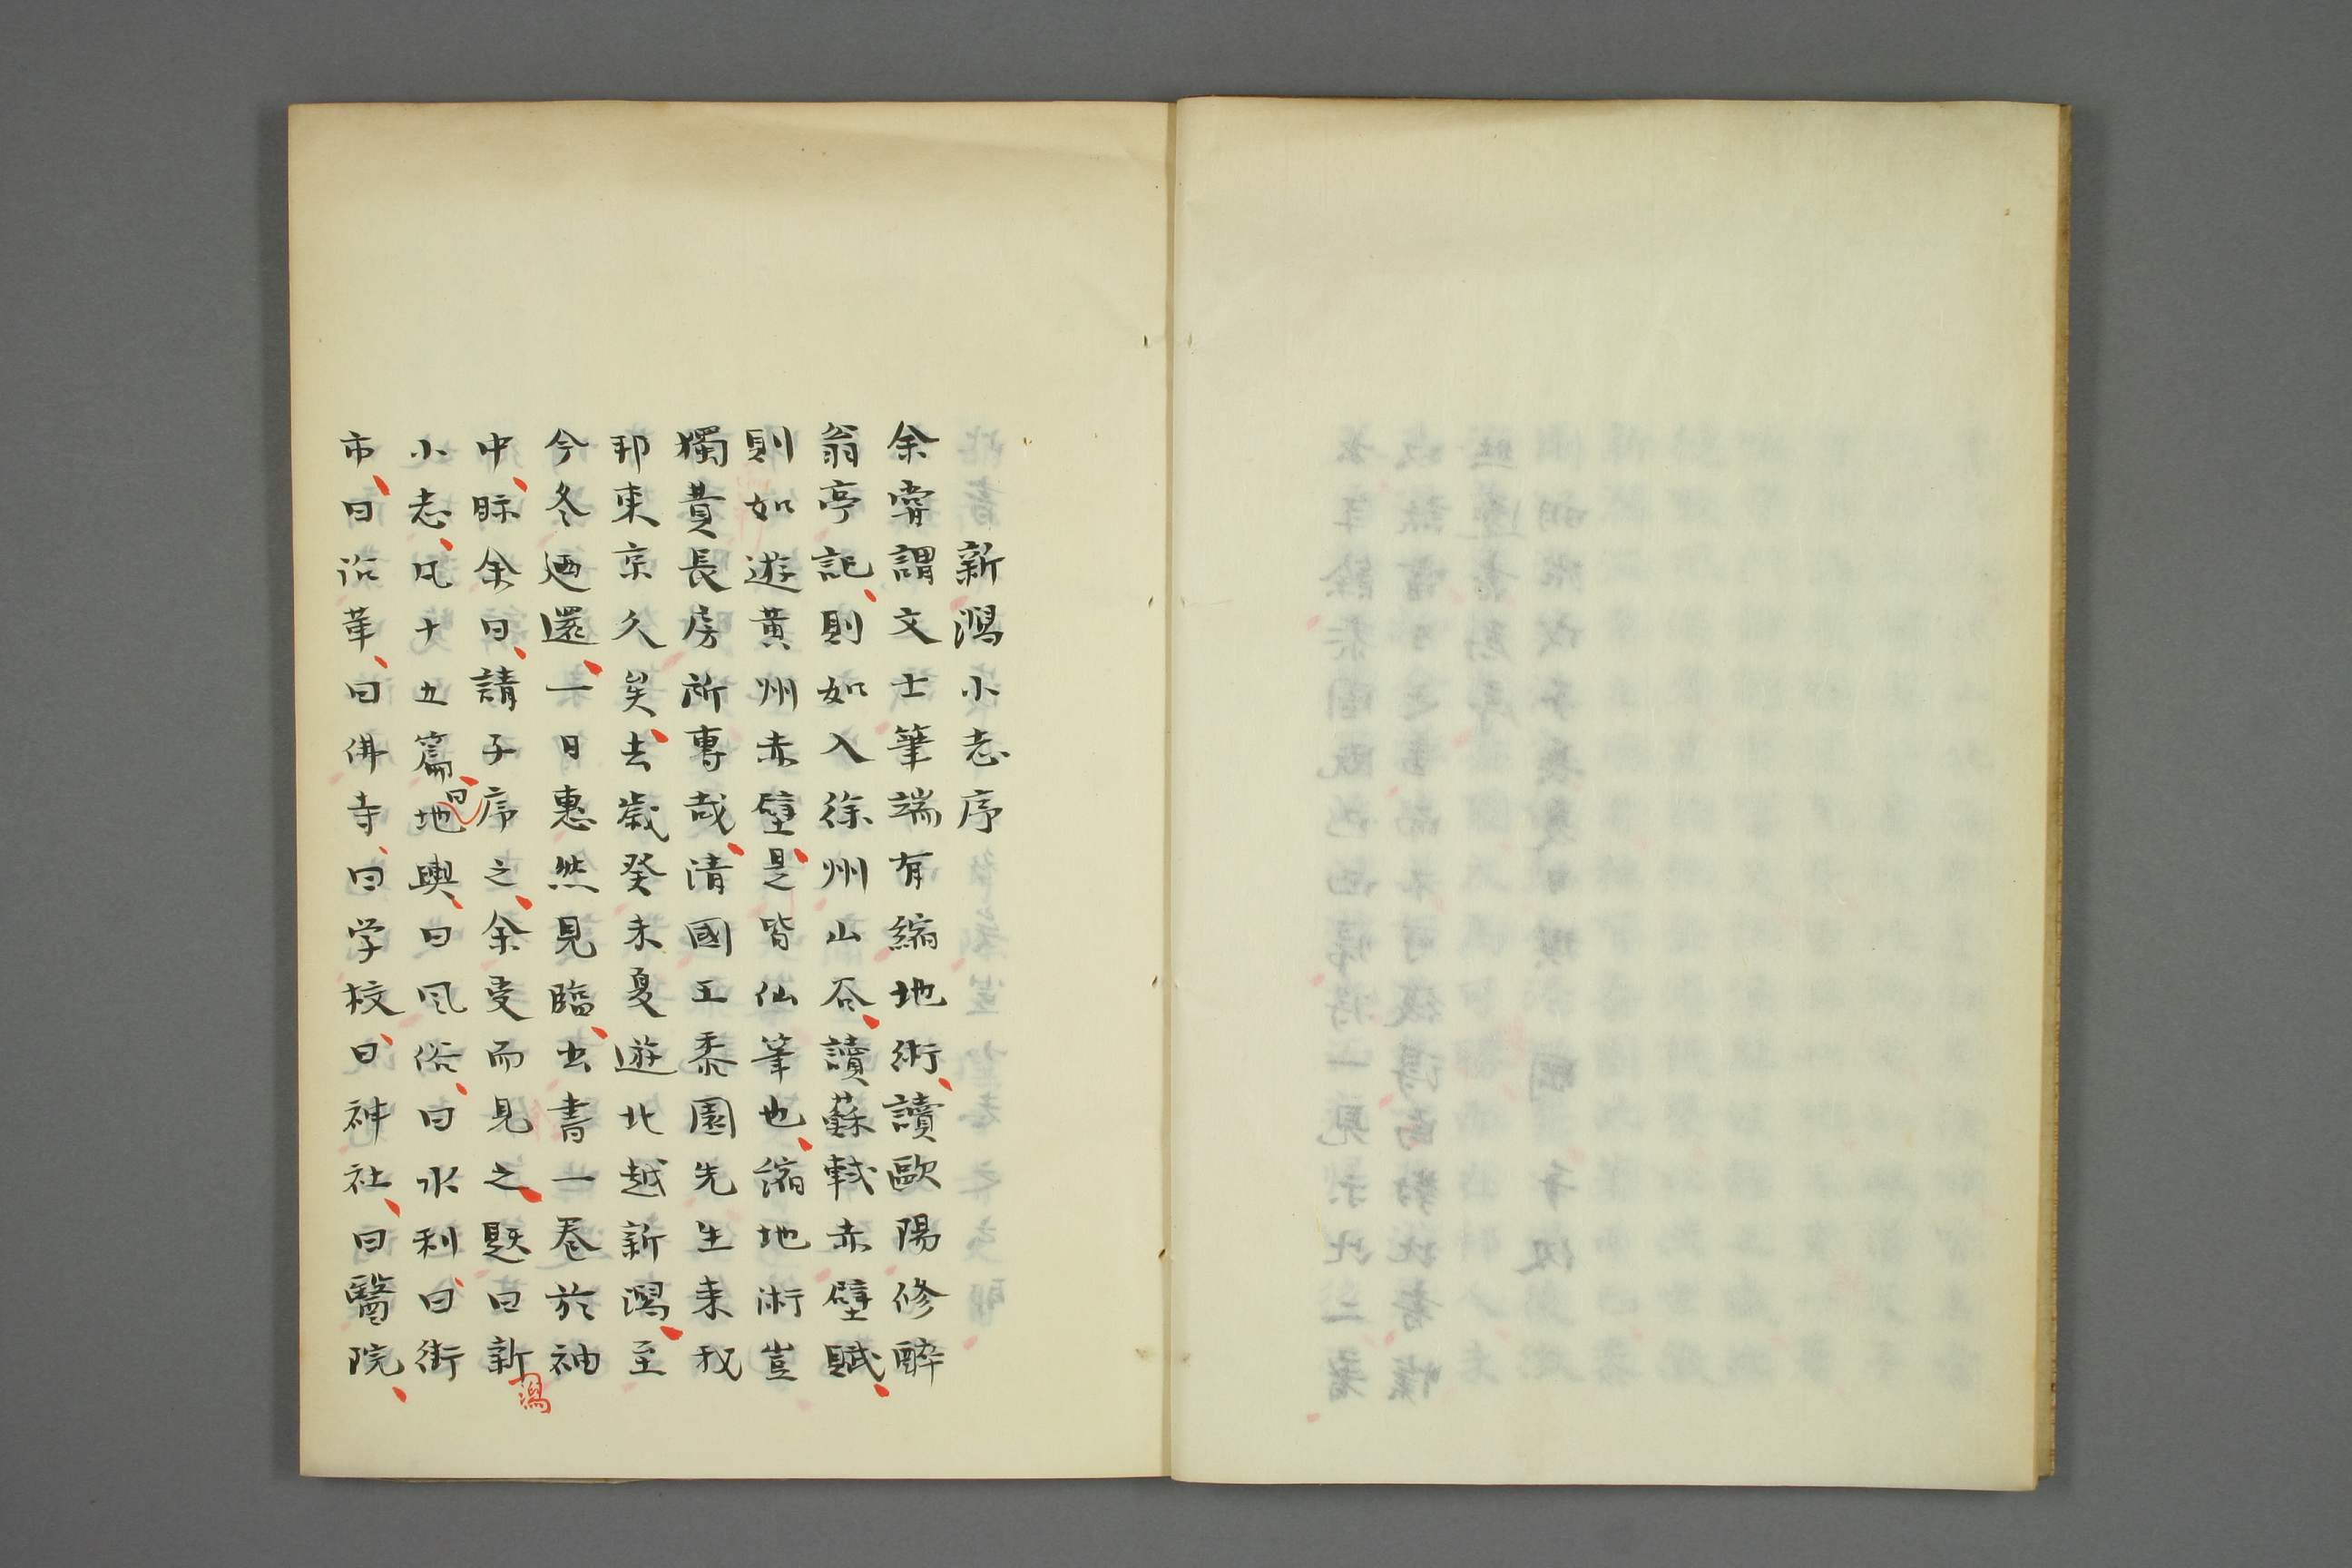 新潟小志序
余嘗謂文士筆端有縮地術讀歐陽修醉
翁亭記則如入徐州山谷讀蘇軾赤壁賦
則如遊黄州赤壁是皆仙筆也縮地術豈
獨費長房所専哉清國王黍園先生来我
邦東京久矣去歳癸未夏遊北越新潟至
今冬廼還一日惠然見臨出書一巻於袖
中眎余曰請子序之余受而見之題曰新潟
小志凡十五篇曰地輿曰風俗曰水利曰街
市曰沿革曰佛寺曰学校曰神社曰醫院